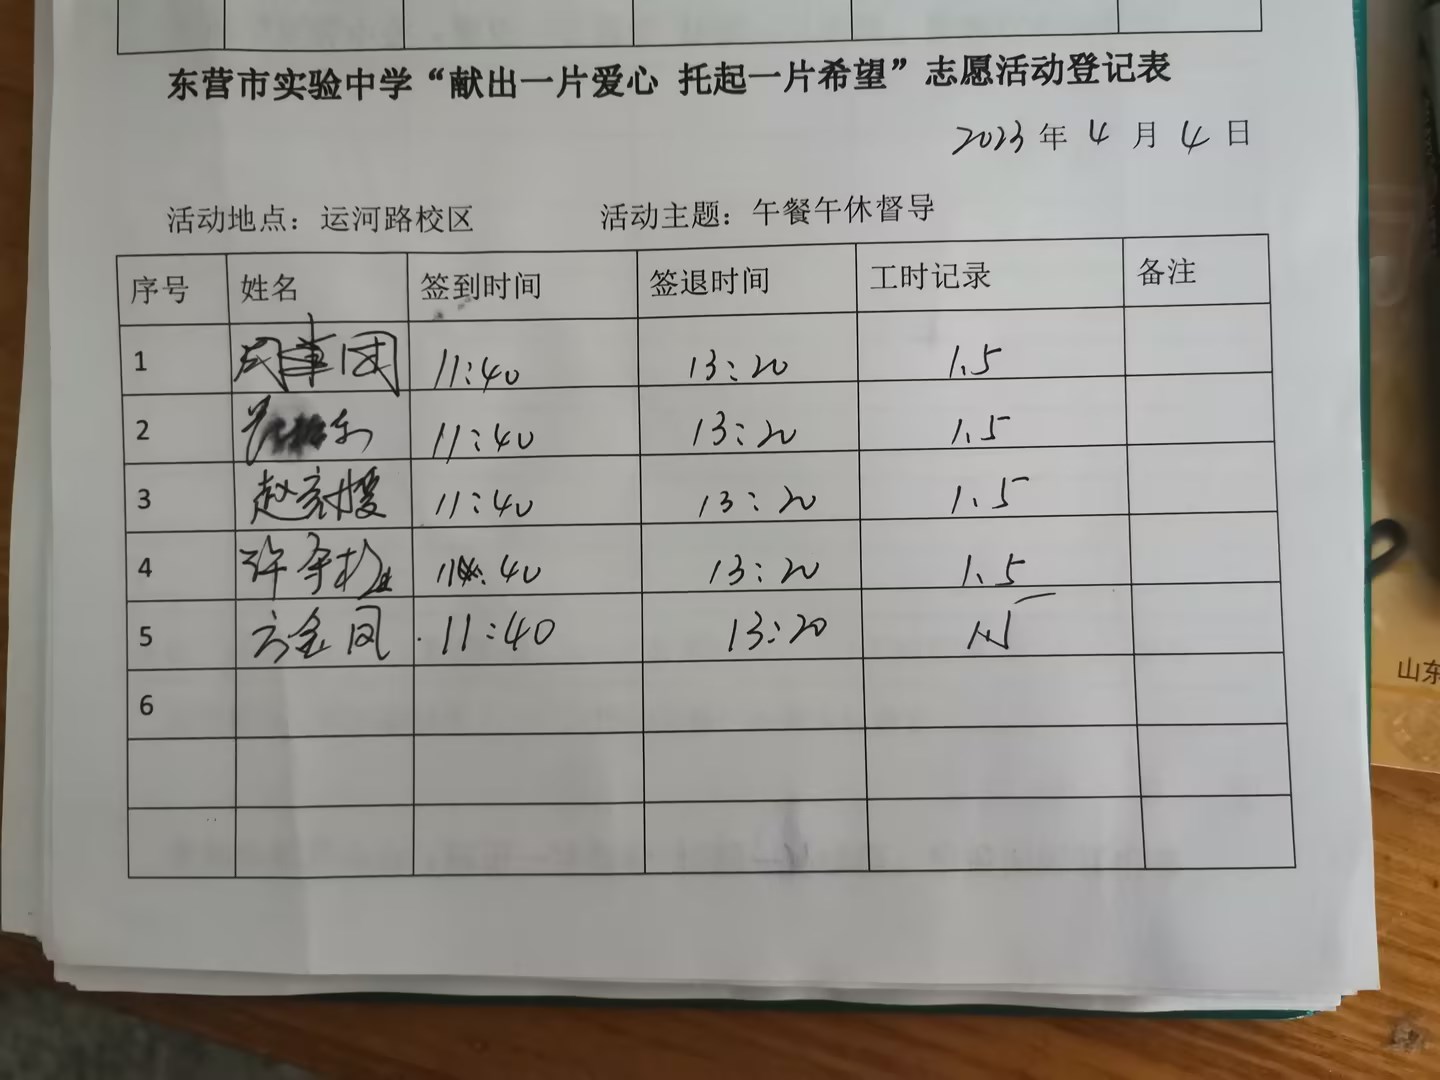 东营市实验中学“献出一片爱心 托起一片希望”志愿活动登记表
2023 年 4 月 4 日
活动地点：运河路校区 活动主题：午餐午休督导
序号 姓名 签到时间 签退时间 工时记录 备注
1 11:40 13:20 1.5
2 11:40 13:20 1.5
3 赵 11:40 13:20 1.5
4 许 11:40 13:20 1.5
5 方金凤 11:40 13:20 1.5
6
山东